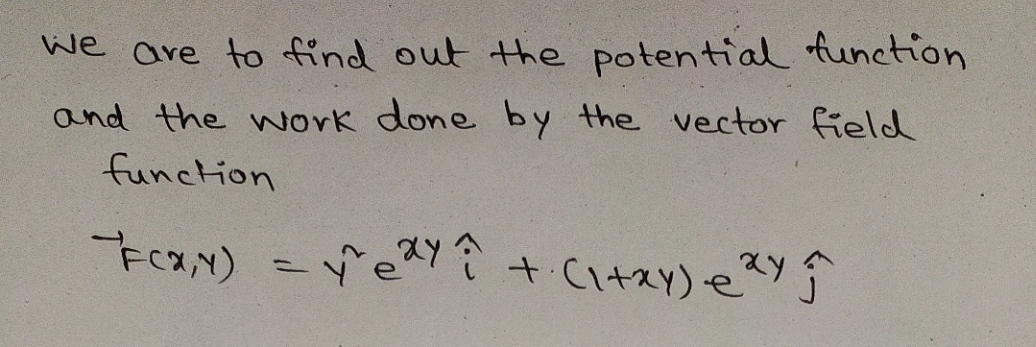 We are to find out the potential function
and the work done by the vector field
function
→F(x,y) = y² e^xy î + (1+xy) e^xy ĵ